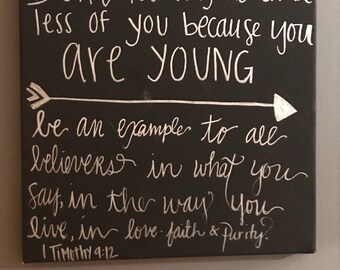 less of you because you
are YOUNG
be an example to all
believers in what you
say, in the way you
live, in love. faith & Purity.
1 Timothy 4:12